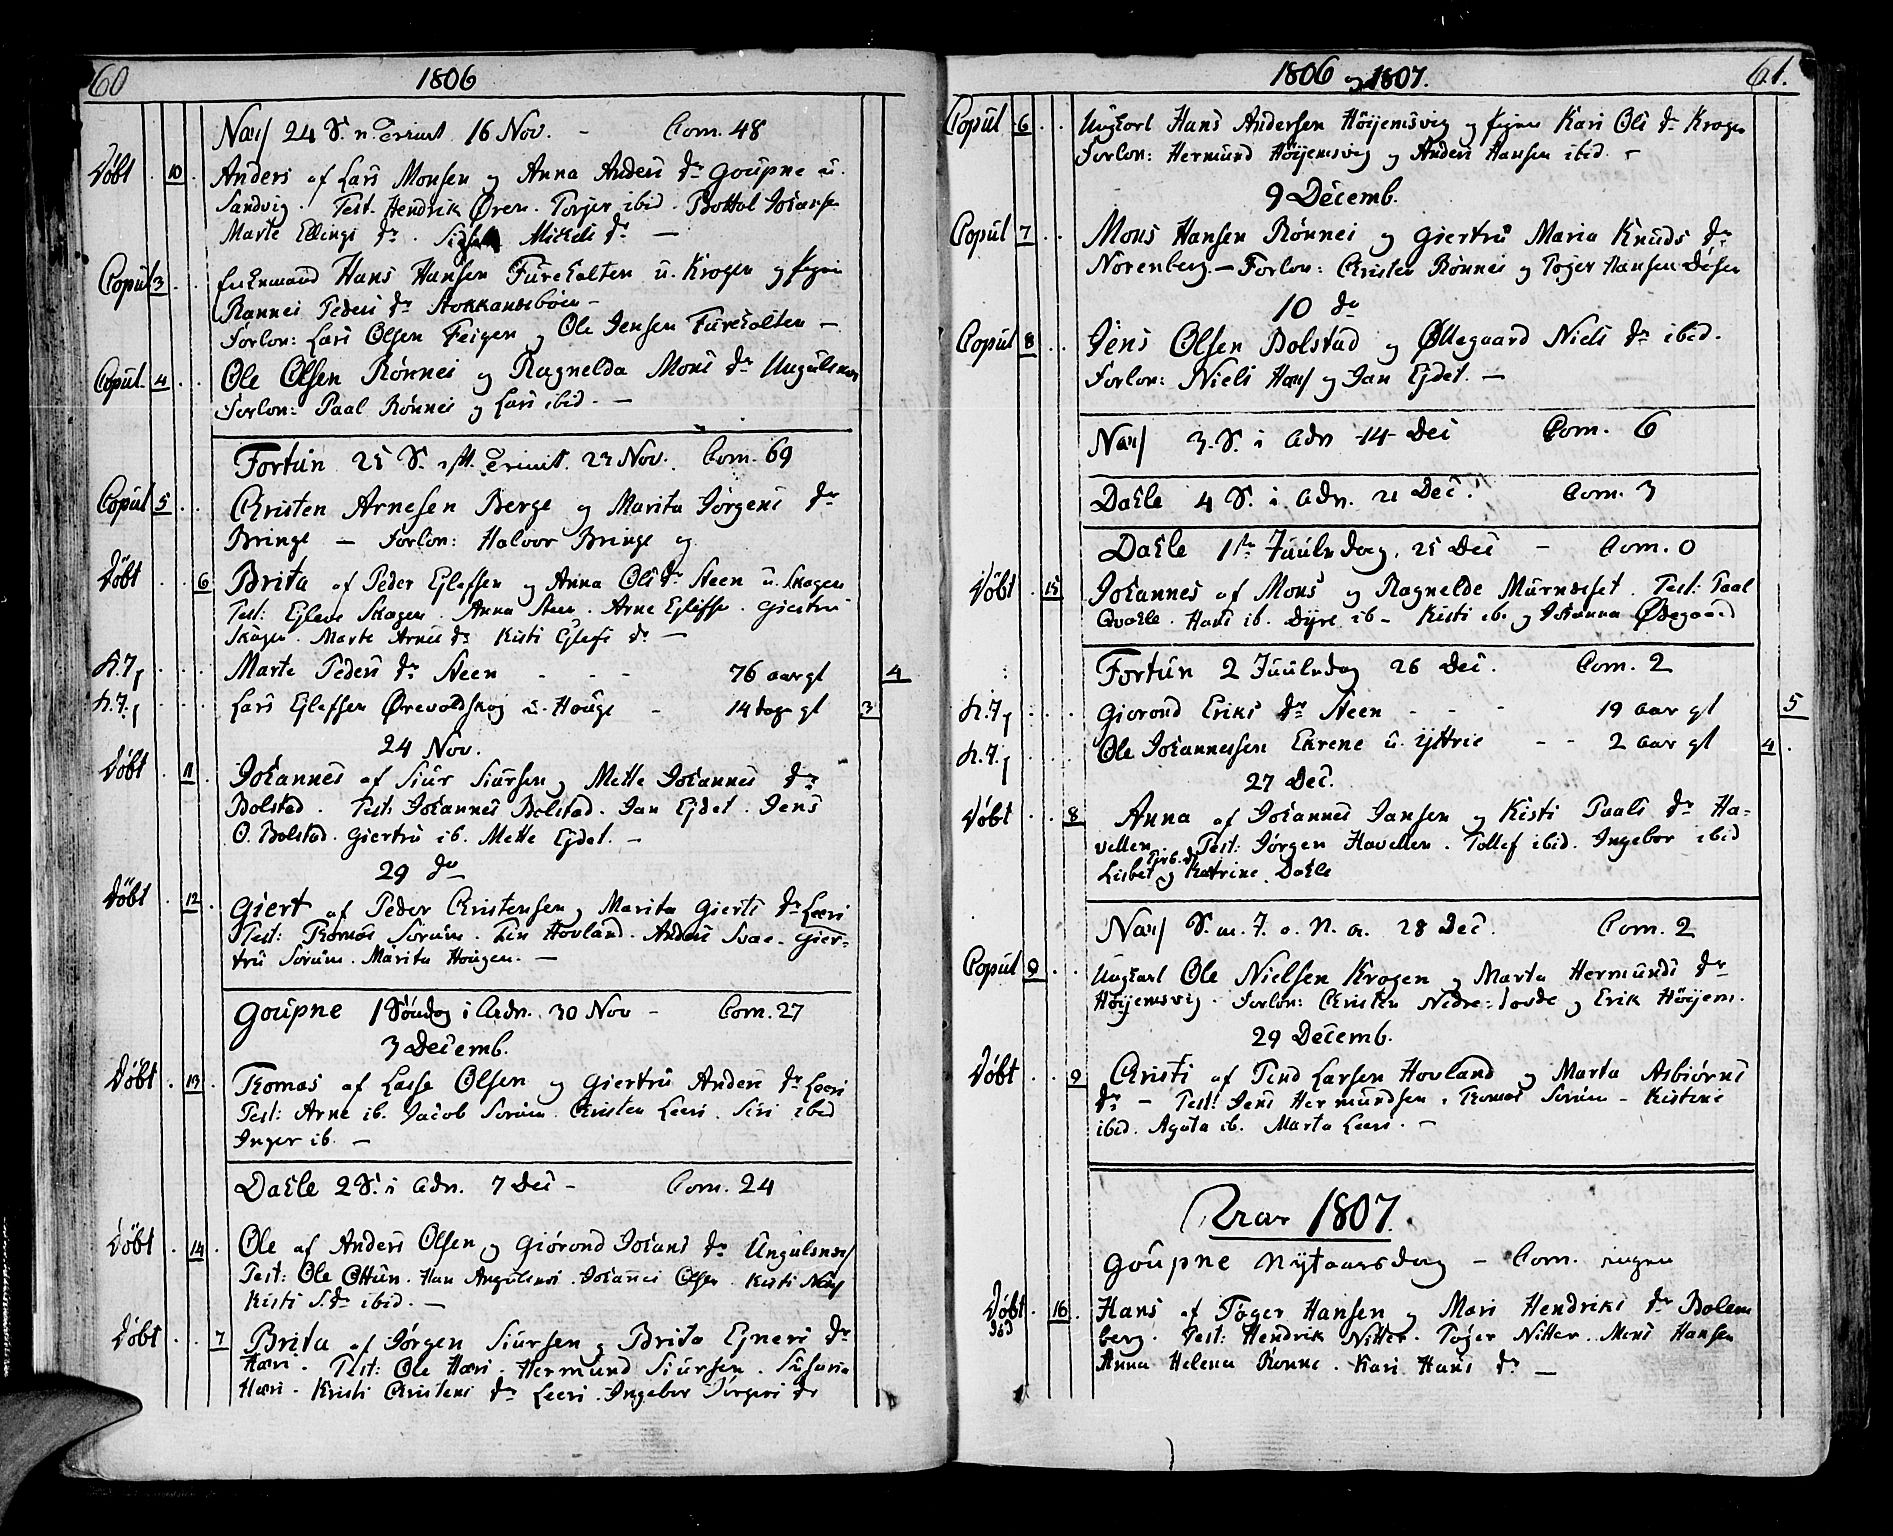 60 1806
Næs 24 S. n. Trinit. 16 Nov. - Com. 48
Döbt 10 Anders af Lars Monsen og Anna Anders dr Goupne u.
Sandvig. Test. Hendrik Øren. Torjer ibid. Bottol Johans.
Marte Ellings dr. Mickels dr —
Copul 3 Enkemand Hans Hansen Furehalten u. Krogen og pigen
Rannei Peders dr Stokkandsböen -
Forlov: Lars Olsen Feigen og Ole Jensen Furehalten —
Copul. 4 Ole Olsen Rönnei og Ragnelda Mons dr Ungulsnæs
Forlov: Paal Rönnei og Lars ibid. —
Fortun 25 S. eft. Trinit. 23 Nov. Com. 69
Copul 5 Christen Arnesen Berge og Marita Jörgens dr
Bringe — Forlov: Halvor Bringe og
Döbt 6 Brita af Peder Ejlefsen og Anna Ols dr Steen u. Skagen
Test: Ejlev Skagen. Anna Steen. Arne Ejlefs. Giertru
Skagen. Marte Arnes dr Kisti Ejlefs dr —
Marte Peders dr Steen - - - 76 aar gl 4
Lars Ejlefsen Ørevoldskog u. Houge - 14 dage gl 3
24 Nov.
Döbt 11 Johannes af Siur Siursen og Mette Johannes dr
Bolstad. Test: Johannes Bolstad. Jan Ejdet. Jens
O. Bolstad. Giertru ib. Mette Ejdet. —
29 do
Döbt 12 Giert af Peder Christensen og Marita Gierts dr Leeri
Test: Thomas Sorum. Hovland. Anders Svae. Gier-
tru Sorum. Marita Hougen. —
Goupne 1 Söndag i Advn. 30 Nov - Com. 27
3 Decemb.
Döbt 13 Thomas af Lasse Olsen og Giertru Anders dr Leeri
Test: Arne ib. Jacob Sorum. Christen Leeri. Siri ibid
Inger ib. —
Dahle 2 S. i Adv. 7 Dec - Com. 24
Döbt 14 Ole af Anders Olsen og Giörond Johans dr Ungulsnæs
Test: Ole Ottun. Hans Angulsnæs. Johannes Olsen. Kisti Næs
Kisti S. dr ibid. —
Döbt 7 Brita af Jörgen Siursen og Brita Ejners dr
Hæri. Test: Ole Hæri. Hermund Siursen. Susana
Hæri. Kristi Christens dr Leeri. Ingebor Jörgens dr
1806 og 1807. 61.
Copul 6 Ungkarl Hans Andersen Höijemsvig og pigen Kari Ols dr Krogen
Forlov: Hermund Höijemsvig og Anders Hansen ibid. -
9 Decemb.
Copul 7 Mons Hansen Rönnei og Giertru Maria Knuds dr
Norenberg. — Forlov: Christen Rönnei og Töger Hansen Dösen
10 do
Copul 8 Jens Olsen Bolstad og Øllegaard Niels dr ibid.
Forlov: Niels Hæs og Jan Ejdet. —
Næs 3. S. i Adv 14 Dec Com. 6
Dahle 4 S. i Adv. 21 Dec. Com. 3
Dahle 1ste Juuledag. 25 Dec - Com. 0
Döbt 15 Johannes af Mons og Ragnelde Murnæset. Test: Paal
Qvaele. Hans ib. Dyre ib - Kisti ib. og Johanna Ødegaard
Fortun 2 Juuledag 26 Dec. Com. 2
Giorond Eriks dr Steen - - - 19 aar gl 5
Ole Johannessen Ekrene u. Yttrie - - 2 aar gl 4
27 Dec.
Döbt 8 Anna af Johannes Jansen og Kisti Paals dr Ha-
vellen. Test: Jörgen Havellen. Tollef ibid. Ingebor ibid
Lisbet og Katrine Dahle
Næs S. m. J. o. N. a. 28 Dec. Com. 2
Copul 9 Ungkarl Ole Nielsen Krogen og Marta Hermunds dr
Höijemsvig. Forlov: Christen Nedre= og Erik Höijem.
29 Decemb.
Döbt 9 Christi af Tend Larsen Hovland og Marta Asbiörns
dr — Test: Jens Hermundsen. Thomas Sorum - Kistine
ibid. Agata ib. Marta Leeri. —
Aar 1807.
Goupne Nytaarsdag - Com. ingen
Döbt 16 Hans af Töger Hansen og Mari Hendriks dr Bolam
berg. Test: Hendrik Nitter. Töger Nitter. Mons Hansen
Anna Helena Rönne. Kari Hans dr —